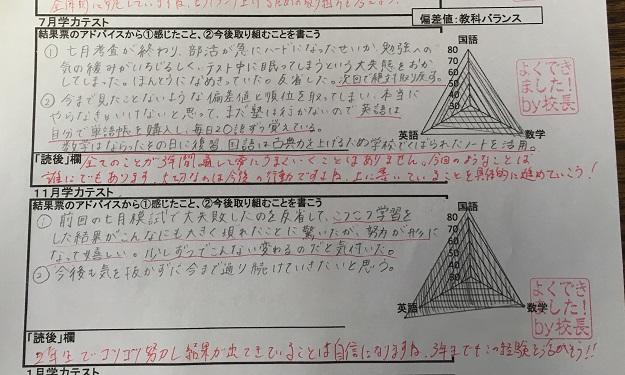 7月学力テスト
偏差値：教科バランス
結果票のアドバイスから①感じたこと、②今後取り組むことを書こう
① 七月考査が終わり、部活が急にハードになったせいか勉強への
気の緩みがいちじるしく、テスト中に眠ってしまうという大失態をおか
してしまった。ほんとうになめきっていた。反省した。次回で絶対取り返す。
② 今まで見たことないような偏差値と順位を取ってしまい、本当に
やらなきゃいけないと思って、まだ塾は行かないので英語は
自分で単語帳を購入し、毎日20語ずつ覚えている。
数学はならったその日に復習 国語は古典力を上げるため学校でくばられたノートを活用。
国語
80
70
60
50
40
30
英語
数学
よくでき
ました！
by校長
「読後」欄
全てのことが3年間 して常にうまくいくことはありません。今回のようなことは
誰にでもあります。大切なのは今後の行動ですよね。上に書いていることを具体的に進めていこう！
11月学力テスト
結果票のアドバイスから①感じたこと、②今後取り組むことを書こう
① 前回の七月模試で大失敗したのを反省して、コツコツ学習を
した結果がこんなにも大きく現れたことに驚いたが、努力が形に
なって嬉しい。少しずつでこんない変わるのだと気付いた。
② 今後も気を抜かずに今まで通り続けていきたいと思う。
国語
80
70
60
50
40
30
英語
数学
よくでき
ました！
by校長
「読後」欄
2年生でコツコツ努力し結果が出てきていることは自信になりますね。3年生でもこの経験を活かそう!!
1月学力テスト